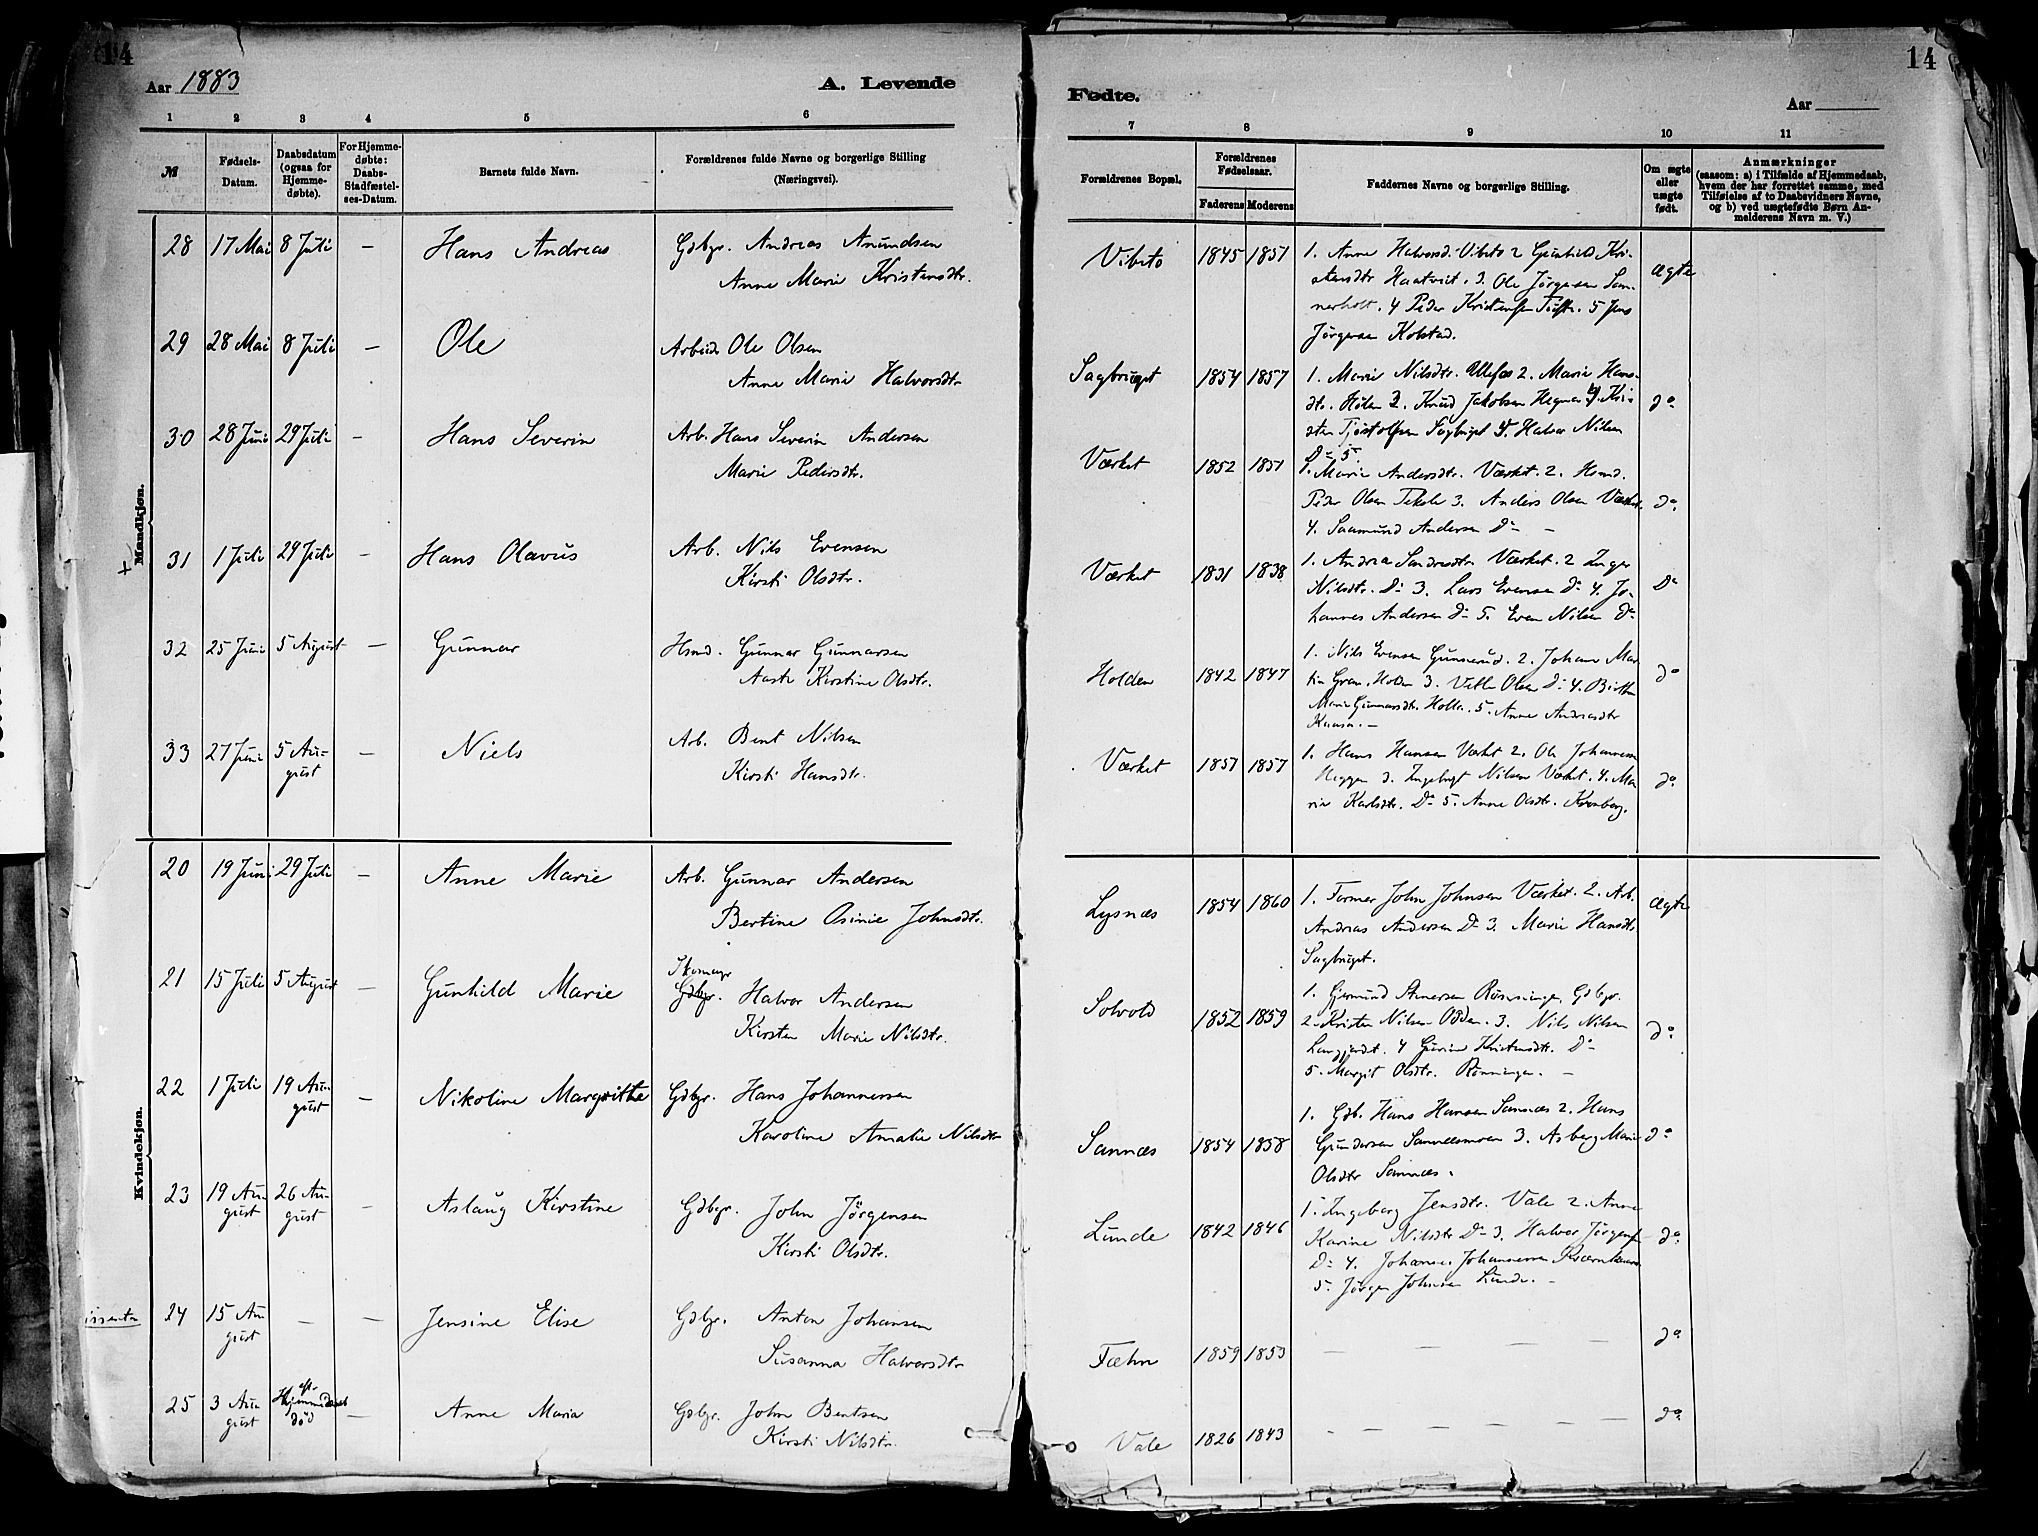 14
Aar 1883
A. Levende
1 2 3 4 5 6
№
Fødsels-Datum.
Daabsdatum (ogsaa for Hjemme-døbte).
For Hjemme-døbte: Daabs-Stadfæstel-ses-Datum.
Barnets fulde Navn.
Forældrenes fulde Navne og borgerlige Stilling
(Næringsvei).
Mandkjøn.
28 17 Mai 8 Juli – Hans Andreas Gdbgr. Andreas Amundsen
Anne Marie Kristensdtr.
29 28 Mai 8 Juli – Ole Arbeidr Ole Olsen
Anne Marie Halvorsdtr
30 28 Juni 29 Juli – Hans Severin Arb. Hans Severin Andersen
Marie Pedersdtr.
+ 31 1 Juli 29 Juli – Hans Olavus Arb. Nils Evensen
Kirsti Olsdtr.
32 25 Juni 5 August – Gunnar Hsmd. Gunnar Gunnarsen
Aaste Kirstine Olsdtr.
33 27 Juni 5 Au-
gust – Niels Arb. Bent Nilsen
Kirsti Hansdtr.
Kvindekjøn.
20 19 Juni 29 Juli – Anne Marie Arb. Gunnar Andersen
Bertine Osinie Johnsdtr.
21 15 Juli 5 August – Gunhild Marie Skomagr
Gdbgr. Halvor Andersen
Kirsten Marie Nilsdtr.
22 1 Juli 19 Au-
gust – Nikoline Margrithe Gdbgr. Hans Johannessen
Karoline Amalie Nilsdtr
23 19 Au-
gust 26 Au-
gust – Aslaug Kirstine Gdbgr. John Jörgensen
Kirsti Olsdtr.
issenter 24 15 Au
gust – – Jensine Elise Gdbgr. Anton Johansen
Susanna Halvorsdtr
25 3 Au
gust eft.
Hjemmedaab
död – Anne Maria Gdbgr. John Bentsen
Kirsti Nilsdtr.
14
Fødte.
Aar
7 8 9 10 11
Forældrenes Bopæl.
Forældrenes Fødselsaar.
Faderens Moderens
Faddernes Navne og borgerlige Stilling.
Om ægte eller uægte født.
Anmærkninger
(saasom: a) i Tilfælde af Hjemmedaab,
hvem der har forrettet samme, med
Tilføielse af to Daabsvidners Navne,
og b) ved uægtefødte Børn An-
melderens Navn m. V.)
Vibeto 1845 1851 1. Anne Halvorsd. Vibeto 2 Gunhild Kri-
stensdtr Haatvit. 3. Ole Jörgensen San-
nerholt. 4 Peder Kristensen 5 Jens
Jörgensen Kolstad. ægte
Sagbruget 1854 1857 1. Marie Nilsdtr. Ulefos 2. Marie Hans-
dtr. Holen 3. Knud Jakobsen Hegna 4. Kri-
sten Tjostolfsen Sagbruget 5. Halvor Nilsen
D– 5. do
Værket 1852 1851 1. Marie Andersdtr. Værket. 2. Hsmd.
Peder Olsen 3. Anders Olsen Værket.
4. Saamund Andersen D– – do.
Værket 1831 1838 1. Andrea Værket. 2 Inger
Nilsdtr. Do 3. Lars Evensen Do 4. Jo-
hannes Andersen Do 5. Even Nilsen Do Do
Holden 1842 1847 1. Nils Evensen Gunnerud. 2. Johan Mar
tin Gran, Holden 3. Vetle Olsen Do 4. Birthe
Marie Gunnarsdtr. Holla. 5. Anne Andreasdtr
Kaasa. – do
Værket 1851 1857 1. Hans Hansen Værket 2. Ole Johannesen
Heggen 3. Ingebregt Nilsen Værket. 4. Ma
rie Karlsdtr. Do 5. Anne Olsdtr. Kronborg. do.
Lysnæs 1854 1860 1. Former John Johnsen Værket. 2. Arb.
Andreas Andersen Do 3. Marie Hansdtr.
Sagbruget. ægte
Solvold 1852 1859 1. Gjermund Rönningen, Gdbgr.
2. Kristen Nilsen 3. Nils Nilsen
4 Gurine Kristensdtr. D–
5. Margit Olsdtr. Rönningen. – do.
Sannæs 1854 1858 1. Gdb. Hans Hansen Sannæs 2. Hans
Gundersen Sannæsmoen 3. Asberg Marie
Olsdtr Sannæs. do
Lunde 1842 1846 1. Ingeborg Jensdtr. Vale 2. Anne
Karine Nilsdtr Do 3. Halvor Jörgensen
Do 4. Johannes Johannessen
5. Jörgen Johnsen Lunde. – do.
Fæhn 1859 1853 – – – – do
Vale 1826 1843 – – – – – do.